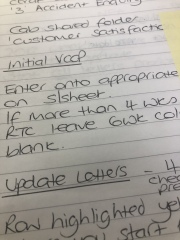 3 Accident Enquiry
Cab shared folder
'customer satisfactio
Initial VCOP
Enter onto appropriate
on s/sheet.
If more than 4 wks
RTC leave 6wk col
blank.
Update Letters - 4
chec
pre
Row highlighted yel
start